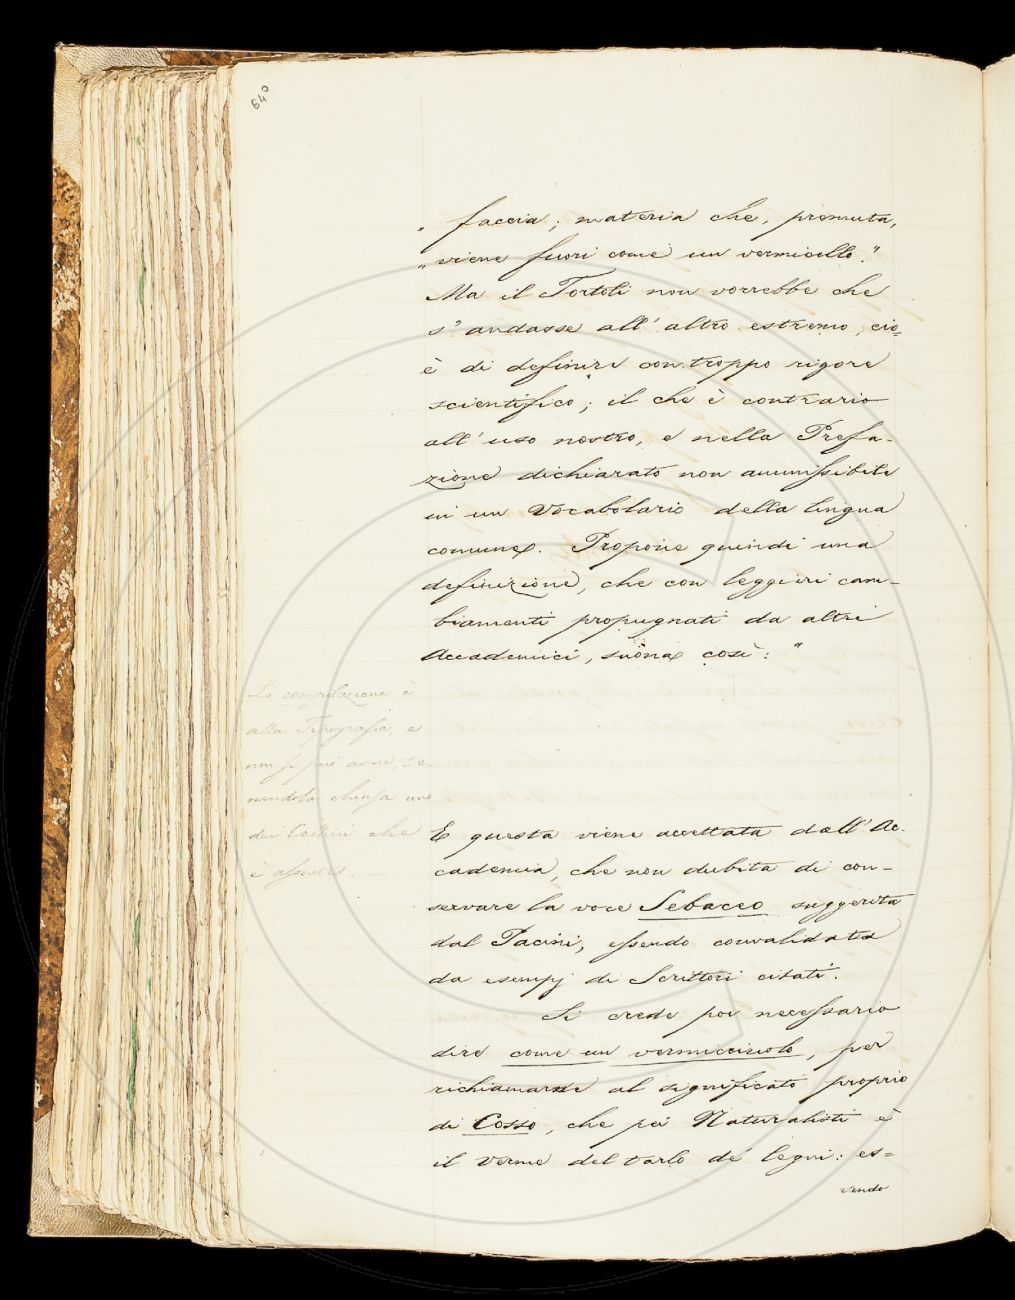 640
„ faccia; materia che, premuta,
„ viene fuori come un vermicello."
Ma il Tortoli non vorrebbe che
s'andasse all'altro estremo, cio=
è di definire con troppo rigore
scientifico; il che è contrario
all'uso nostro, e nella Prefa-
zione dichiarato non ammissibile
in un Vocabolario della lingua
comune. Propone quindi una
definizione, che con leggieri cam-
biamenti propugnati da altri
Accademici, suona così: "
La compilazione è
alla Tipografia, e
non si può avere, te-
nendola chiusa uno
dei Cellini che
è assente.
E questa viene accettata dall'Ac-
cademia, che non dubita di con-
servare la voce Sebaceo suggerita
dal Pacini, essendo convalidata
da esempj di Scrittori citati.
Si crede poi necessario
dire come un vermicciuolo, per
richiamare al significato proprio
di Cosso, che pei Naturalisti è
il verme del tarlo de' legni: es=
sendo